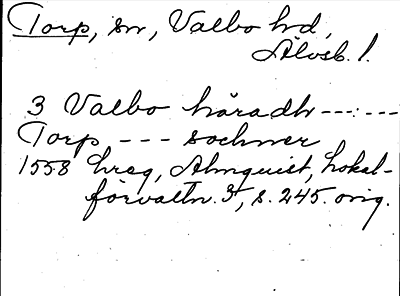 Torp, sn, Valbo hd,
Älvsb. l.
3 Valbo häradh ---:---
Torp --- sochner
1558 hreg, Almquist, Lokal-
förvaltn. 3, s. 245. orig.